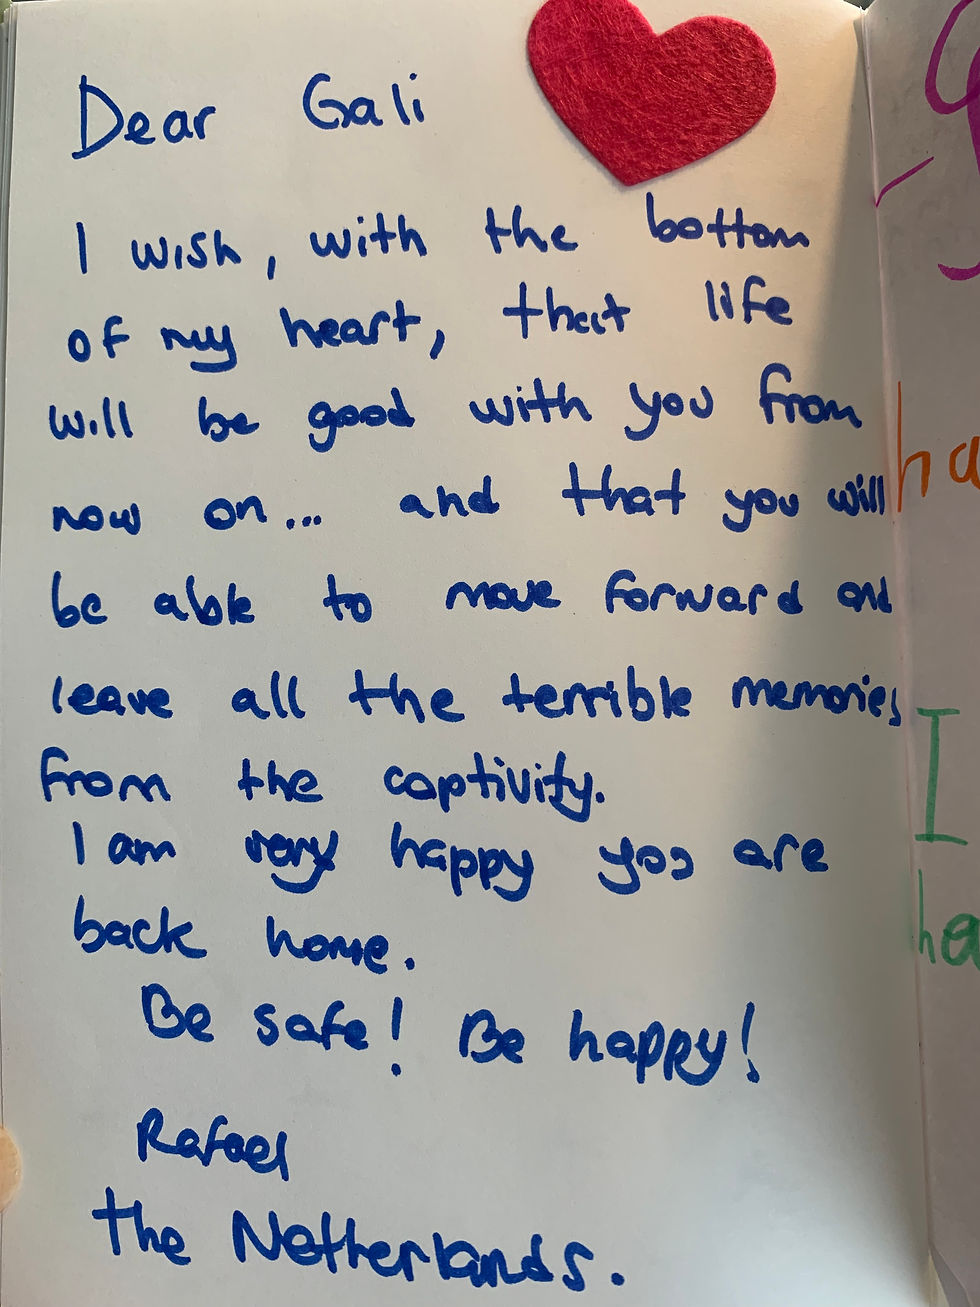 Dear Gali
I wish, with the bottom
of my heart, that life
will be good with you from
now on... and that you will
be able to move forward and
leave all the terrible memories
from the captivity.
I am very happy you are
back home.
Be safe! Be happy!
Rafael
the Netherlands.
ha
I
ha